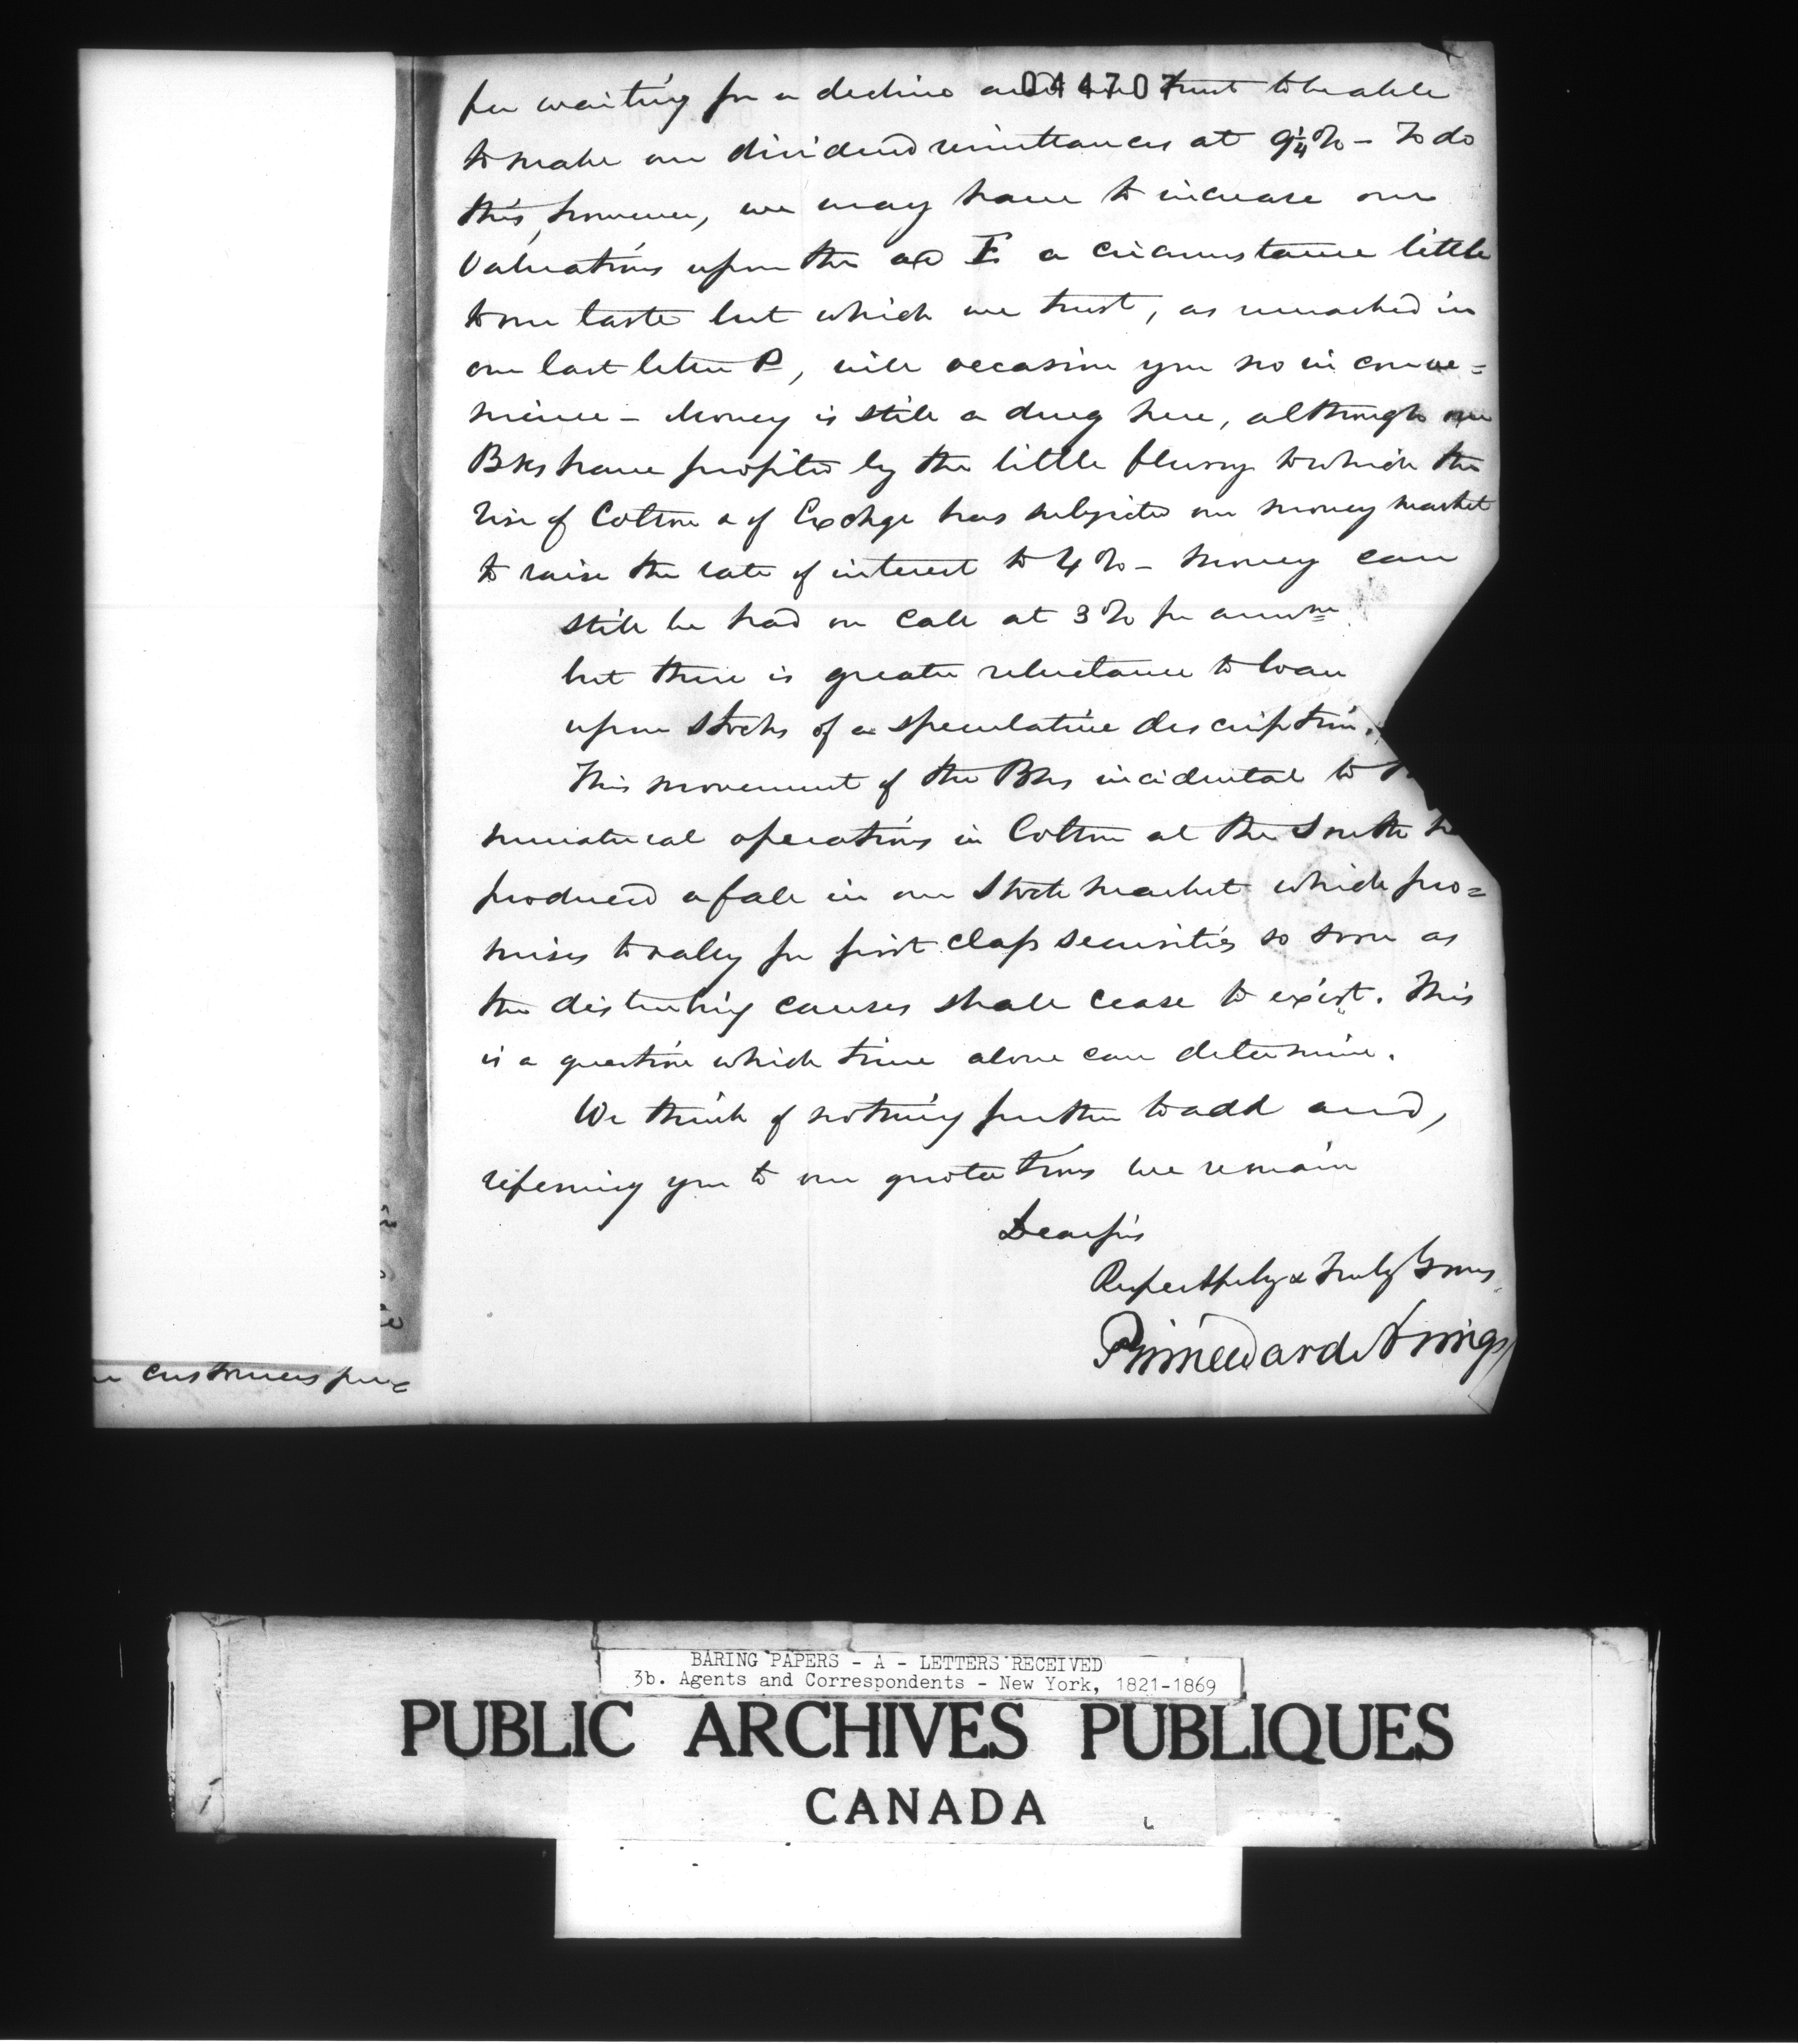 044707
for waiting for a decline and we trust to be able
to make our dividend remittances at 9¼% – To do
this, however, we may have to increase our
Valuations upon the a/c F a circumstance little
to our taste but which we trust, as remarked in
our last letter P, will occasion you no inconve=
nience – Money is still a drug here, although our
Bks have profited by the little flurry to which the
rise of Cotton & of Exchge has subjected our money market
to raise the rate of interest to 4% – Money can
still be had on Call at 3% per annum
but there is greater reluctance to loan
upon Stocks of a speculative description.
This movement of the Bks incidental to
unnatural operations in Cotton at the South
produced a fall in our Stock market which pro=
mises to rally for first class securities so soon as
the disturbing causes shall cease to exist. This
is a question which time alone can determine.
We think of nothing further to add and,
referring you to our quotations we remain
Dear sirs
Respectfully & truly Yours
Prime Ward & King
customers pur=
BARING PAPERS - A - LETTERS RECEIVED
3b. Agents and Correspondents - New York, 1821-1869
PUBLIC ARCHIVES PUBLIQUES
CANADA